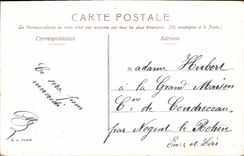 CARTE POSTALE
La Correspondance au recto n'est pas acceptée par tous les pays étrangers. (Se renseigner à la Poste.)
Correspondance
Adresse
Madame Hubert
à la Grand Maison
Cne de Coudreceau
par Nogent le Rotrou
Eure et Loir